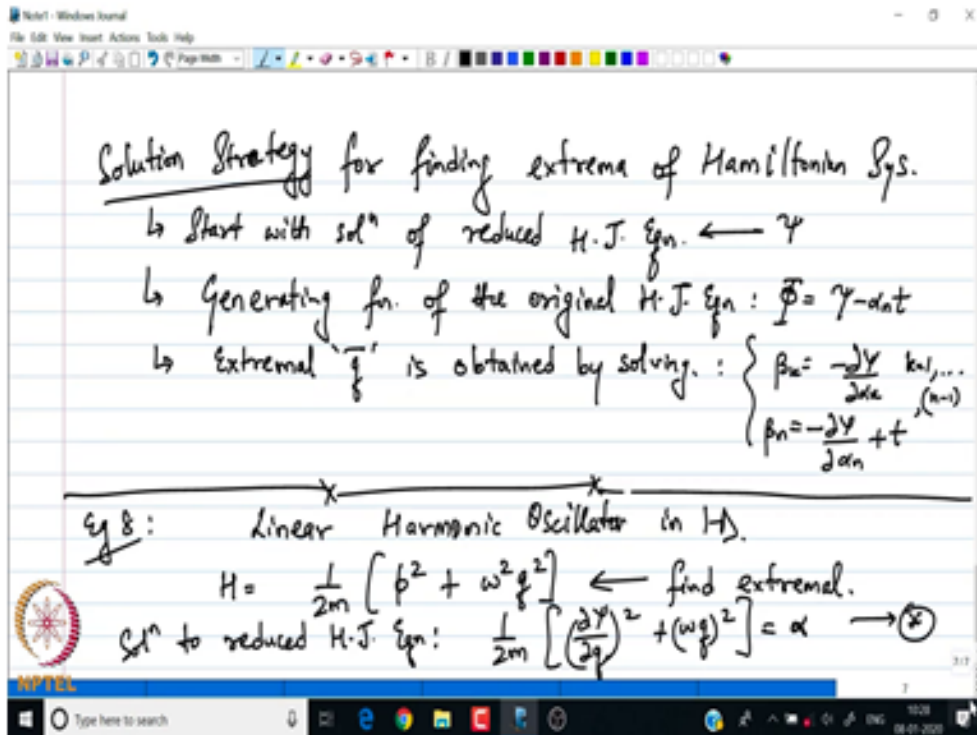 Note1 - Windows Journal
File Edit View Insert Actions Tools Help
Page Width
Solution Strategy for finding extrema of Hamiltonian Sys.
↳ Start with solⁿ of reduced H.J. Eqn. ← Ψ
↳ Generating fn. of the original H.J. Eqn : Φ = Ψ-αₙt
↳ Extremal 'q̄' is obtained by solving. : { βₖ = -∂Ψ/∂αₖ k=1,...,(n-1)
βₙ = -∂Ψ/∂αₙ + t
Eg 8 : Linear Harmonic Oscillator in 1-D.
H = 1/2m [p² + ω²q²] ← find extremal.
Solⁿ to reduced H.J. Eqn : 1/2m [(∂Ψ/∂q)² + (ωq)²] = α → (*)
NPTEL
7/7
7
Type here to search
ENG
10:28
08-01-2020